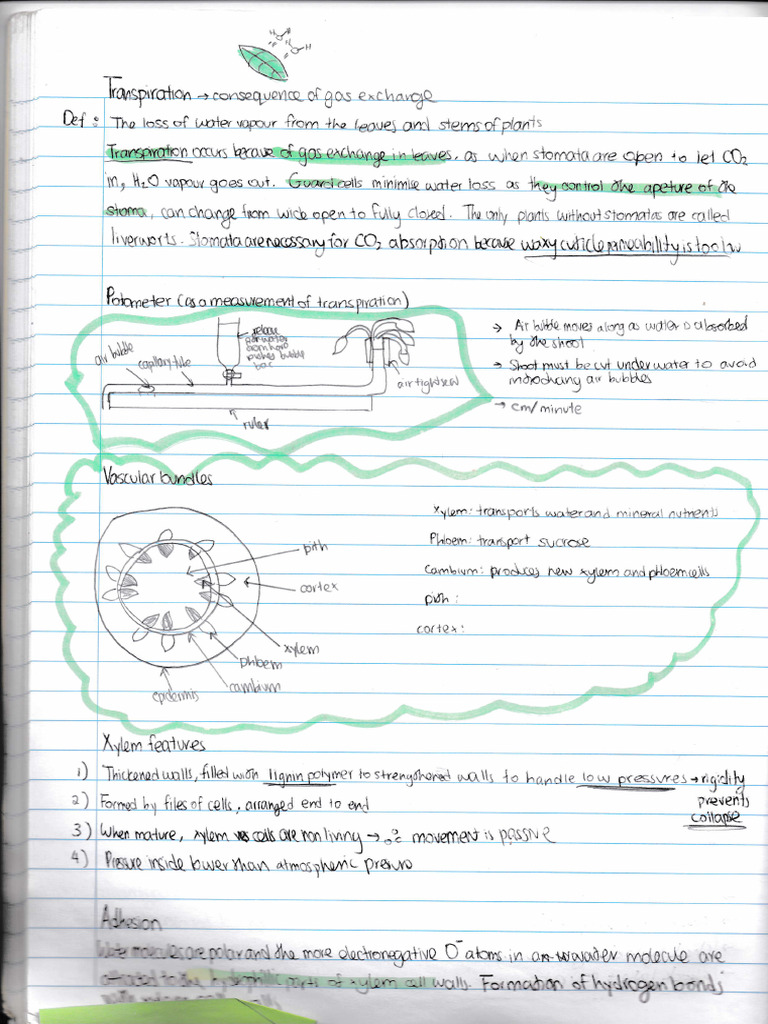 Transpiration → consequence of gas exchange
Def: The loss of water vapour from the leaves and stems of plants
Transpiration occurs becaue of gas exchange in leaves, as when stomata are open to let CO2
in, H2O vapour goes out. Guard cells minimise water loss as they control the apeture of the
stoma, can change from wide open to fully closed. The only plants without stomatas are called
liverworts. Stomata are necessary for CO2 absorption because waxy cuticle permeability is too low
Potometer (as a measurement of transpiration)
air bubble
capillary tube
pushes bubble
airtight seal
ruler
→ Air bubble moves along as water is absorbed
by the shoot
→ Shoot must be cut underwater to avoid
introducing air bubbles
→ cm/minute
Vascular bundles
pith
cortex
xylem
phloem
cambium
epidermis
Xylem: transports water and mineral nutrients
Phloem: transport sucrose
Cambium: produces new xylem and phloem cells
pith:
cortex:
Xylem features
1) Thickened walls, filled with lignin polymer to strengthened walls to handle low pressures → rigidity
prevents
collapse
2) Formed by files of cells, arranged end to end
3) When mature, xylem cells are non living → movement is passive
4) Pressure inside lower than atmospheric pressure
Adhesion
Water molecules are polar and the more electronegative O⁻ atoms in water molecule are
attracted to the hydrophilic parts of xylem cell walls. Formation of hydrogen bonds